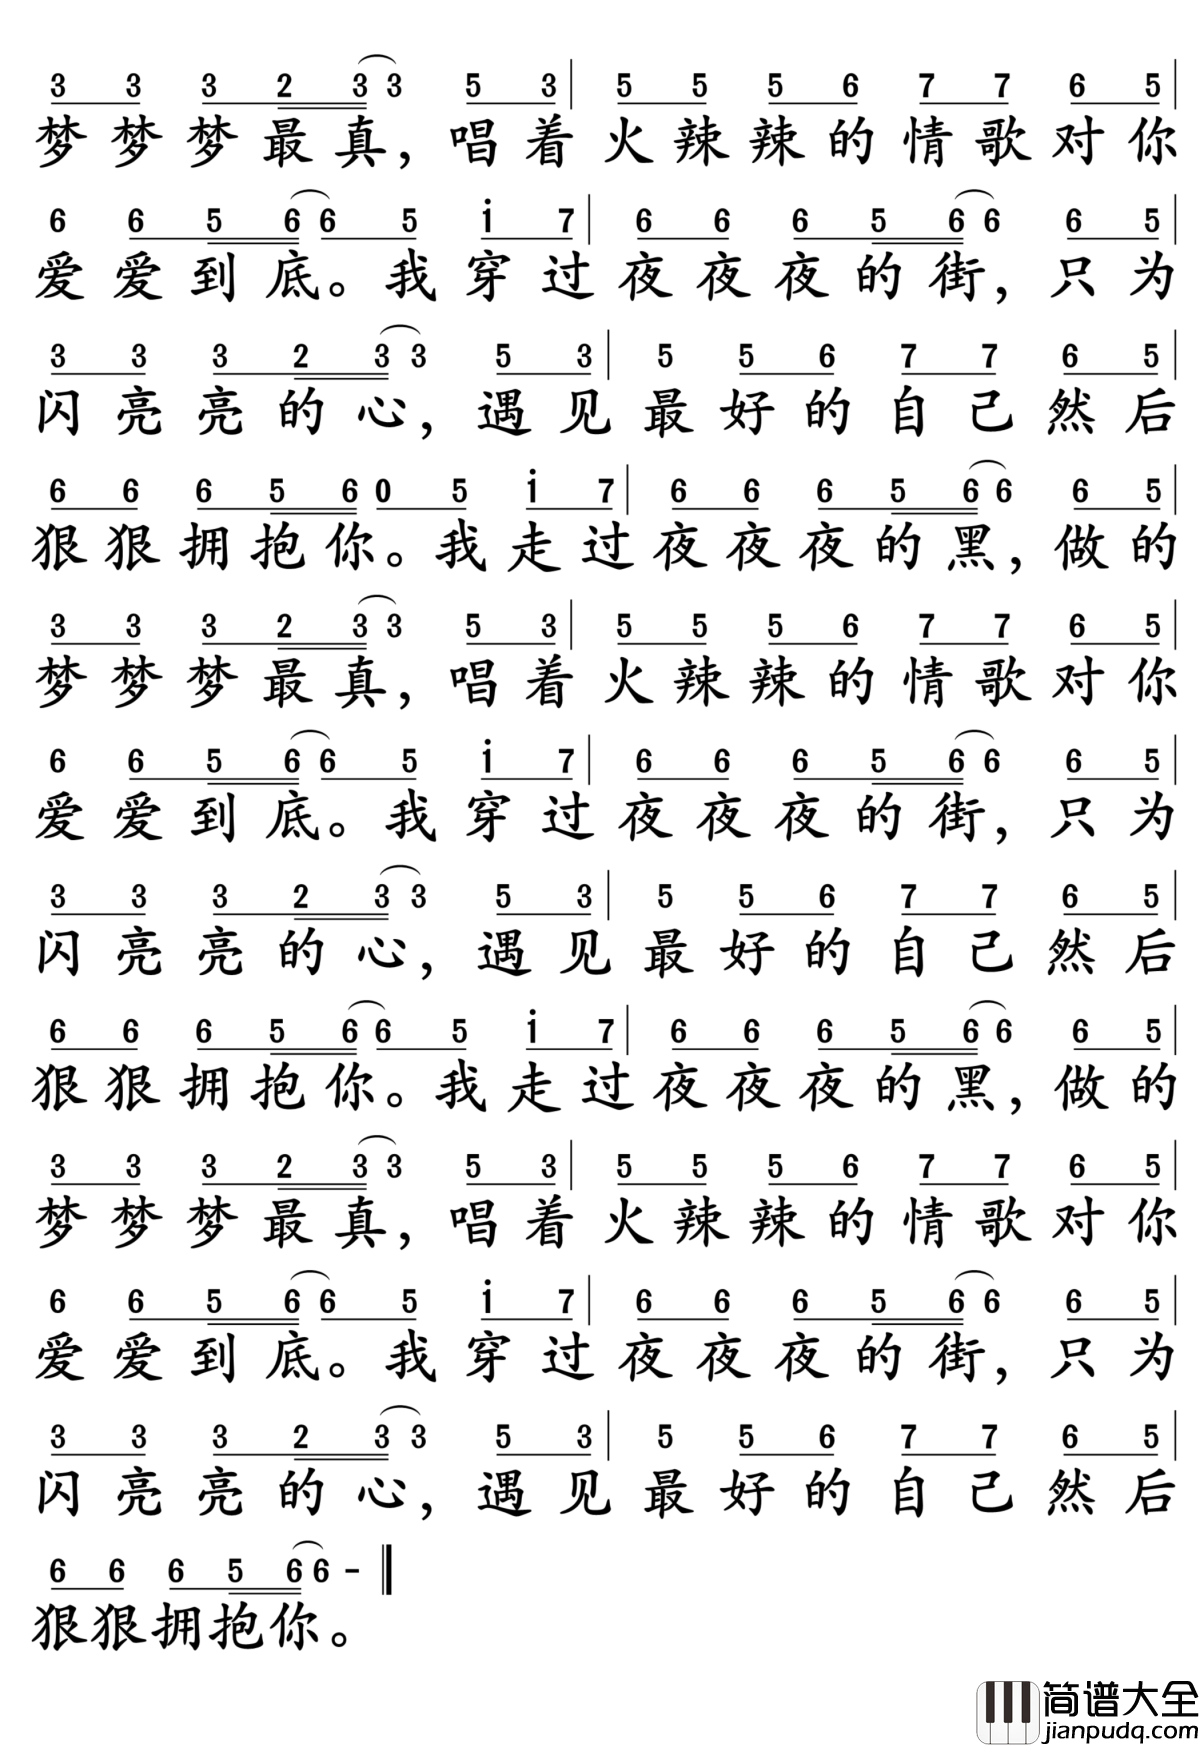 3 3 3 2 3 3 5 3 | 5 5 5 6 7 7 6 5 |
梦梦梦最真，唱着火辣辣的情歌对你
6 6 5 6 6 5 i 7 | 6 6 6 5 6 6 6 5 |
爱爱到底。我穿过夜夜夜的街，只为
3 3 3 2 3 3 5 3 | 5 5 6 7 7 6 5 |
闪亮亮的心，遇见最好的自己然后
6 6 6 5 6 0 5 i 7 | 6 6 6 5 6 6 6 5 |
狠狠拥抱你。我走过夜夜夜的黑，做的
3 3 3 2 3 3 5 3 | 5 5 5 6 7 7 6 5 |
梦梦梦最真，唱着火辣辣的情歌对你
6 6 5 6 6 5 i 7 | 6 6 6 5 6 6 6 5 |
爱爱到底。我穿过夜夜夜的街，只为
3 3 3 2 3 3 5 3 | 5 5 6 7 7 6 5 |
闪亮亮的心，遇见最好的自己然后
6 6 6 5 6 6 5 i 7 | 6 6 6 5 6 6 6 5 |
狠狠拥抱你。我走过夜夜夜的黑，做的
3 3 3 2 3 3 5 3 | 5 5 5 6 7 7 6 5 |
梦梦梦最真，唱着火辣辣的情歌对你
6 6 5 6 6 5 i 7 | 6 6 6 5 6 6 6 5 |
爱爱到底。我穿过夜夜夜的街，只为
3 3 3 2 3 3 5 3 | 5 5 6 7 7 6 5 |
闪亮亮的心，遇见最好的自己然后
6 6 6 5 6 6 - ‖
狠狠拥抱你。
简谱大全
jianpudq.com